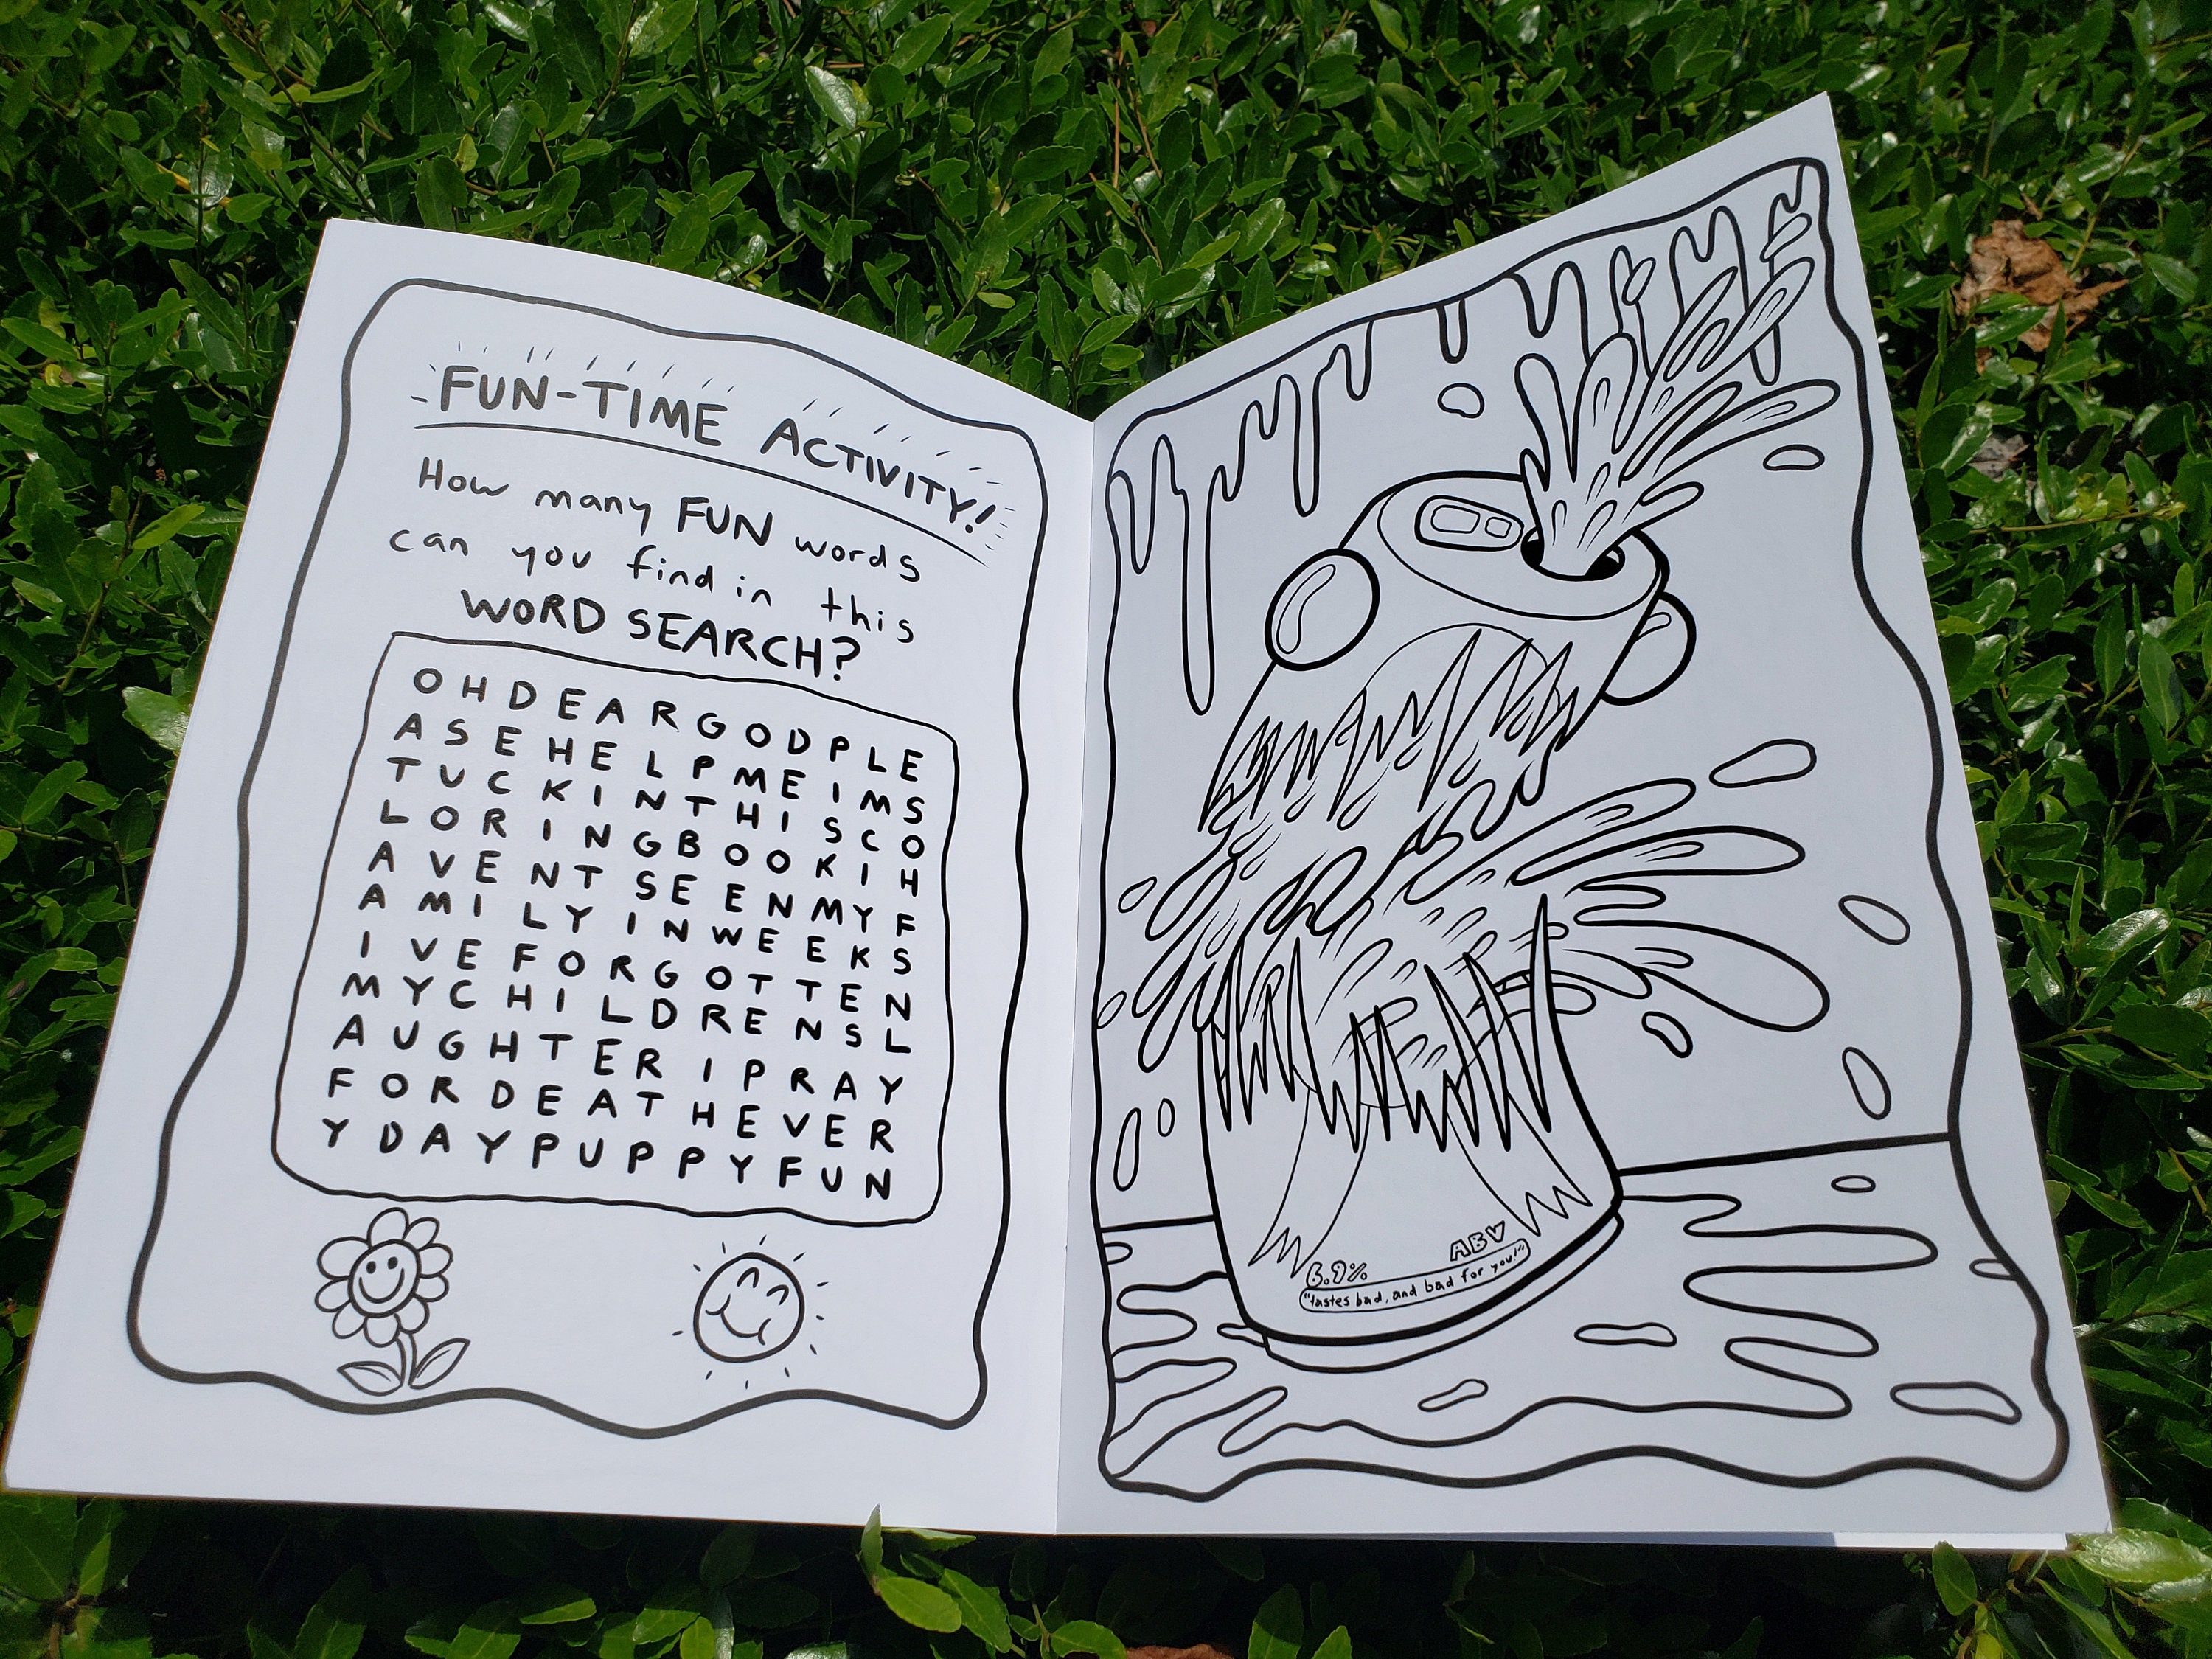 FUN-TIME ACTIVITY!
How many FUN words
can you find in this
WORD SEARCH?
O H D E A R G O D P L E
A S E H E L P M E I M S
T U C K I N T H I S C O
L O R I N G B O O K I H
A V E N T S E E N M Y F
A M I L Y I N W E E K S
I V E F O R G O T T E N
M Y C H I L D R E N S L
A U G H T E R I P R A Y
F O R D E A T H E V E R
Y D A Y P U P P Y F U N
6.9% ABV
"tastes bad, and bad for you!"